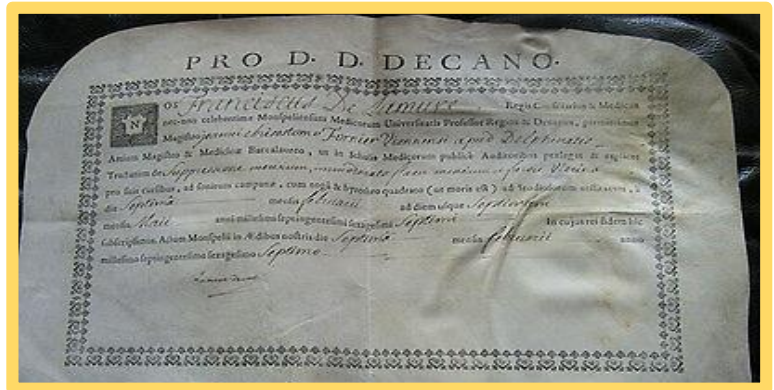 PRO D. D. DECANO.
NOS Franciscus De Lamure Regis Consiliarius & Medicus
nec-non celeberrimæ Monspeliensium Medicorum Universitatis Professor Regius & Decanus, permittimus
Magistro joanni chrisostomo Viennensi apud Delphinates
Artium Magistro & Medicinæ Baccalaureo, ut in Scholis Medicorum publicè Auditoribus perlegat & explicet
Tractatum de Suppressione mensium,
pro suis cursibus, ad sonitum campanæ, cum togâ & byrrheto quadrato (ut moris est) ad Studiosorum utilitatem, à
die Septimâ mensis februarii ad diem usque Septimam
mensis Maii anni millesimi septingentesimi sexagesimi Septimi In cujus rei fidem hîc
subscripsimus. Actum Monspelii in Ædibus nostris die Septimâ mensis februarii anno
millesimo septingentesimo sexagesimo Septimo